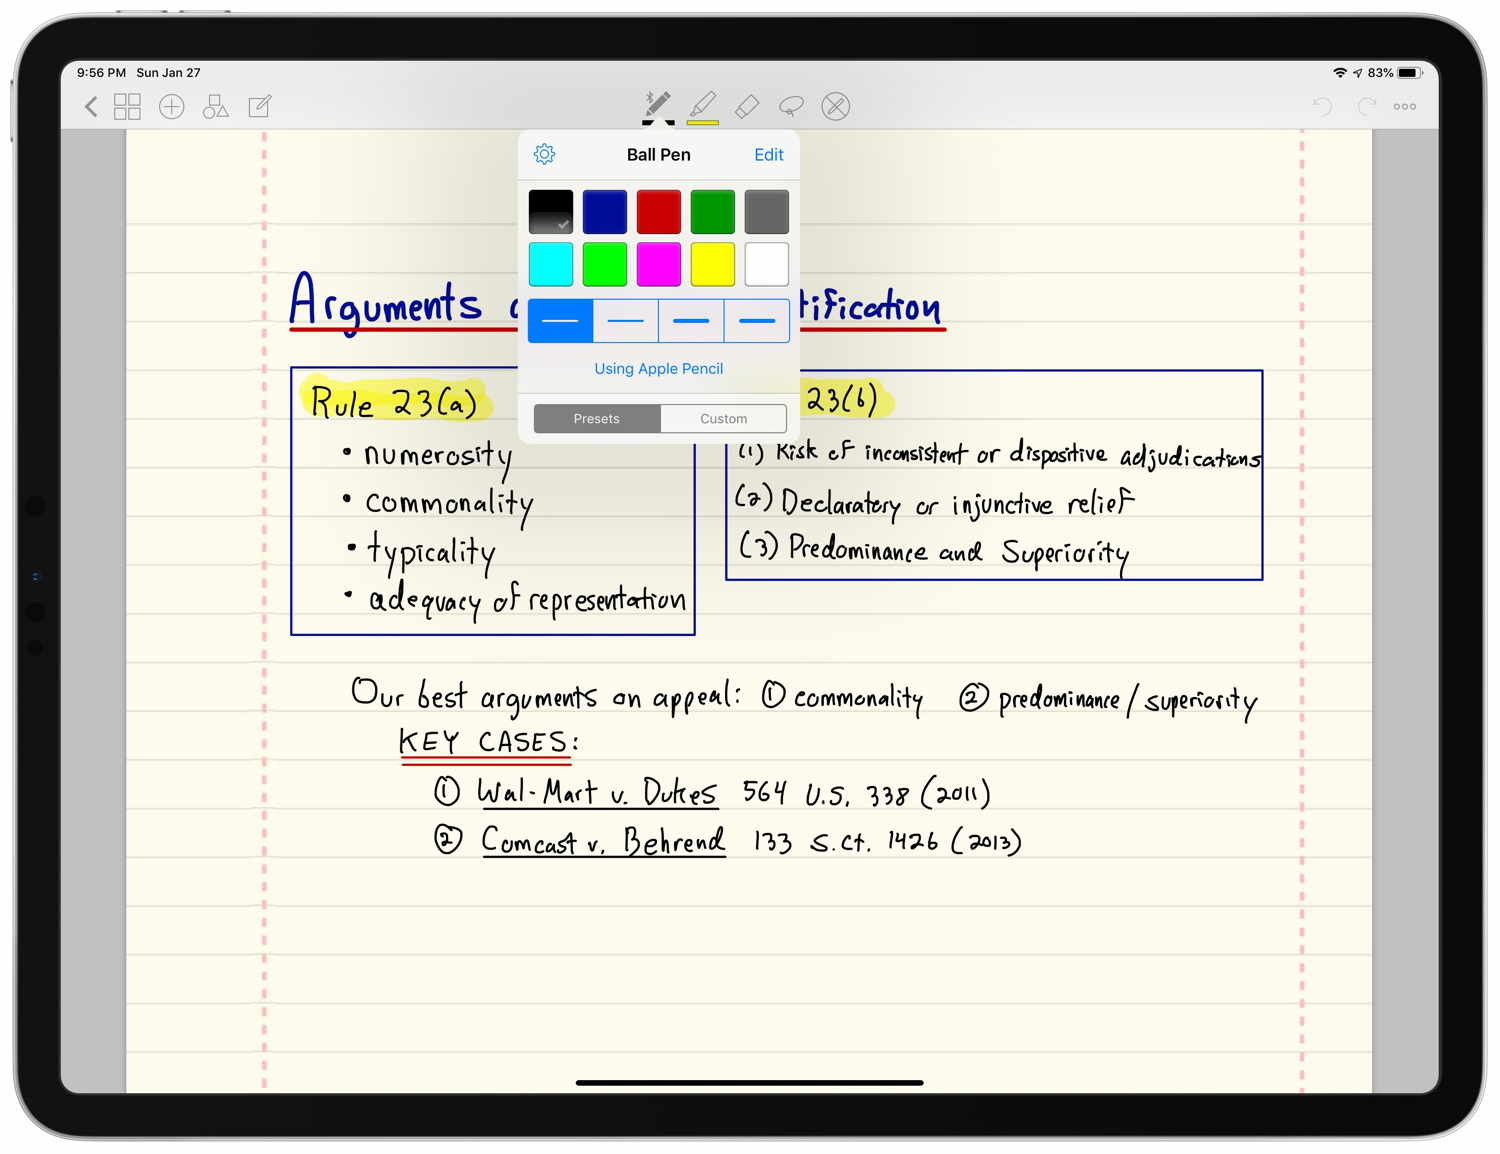 9:56 PM Sun Jan 27 83%
Ball Pen Edit
Using Apple Pencil
Presets Custom
Arguments tification
Rule 23(a)
• numerosity
• commonality
• typicality
• adequacy of representation
23(b)
(1) Risk of inconsistent or dispositive adjudications
(2) Declaratory or injunctive relief
(3) Predominance and Superiority
Our best arguments on appeal: ① commonality ② predominance/superiority
KEY CASES:
① Wal-Mart v. Dukes 564 U.S. 338 (2011)
② Comcast v. Behrend 133 S.Ct. 1426 (2013)